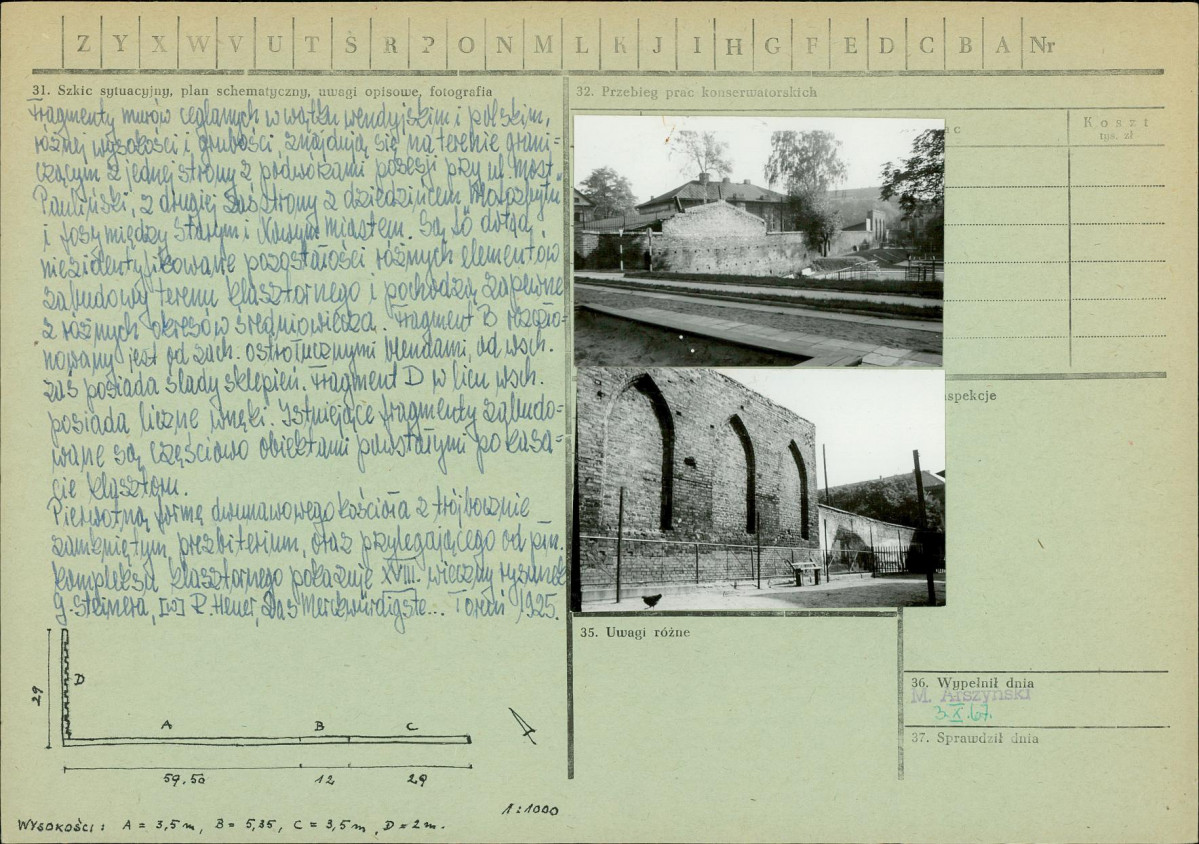 Z Y X W V U T Ś R P O N M L K J I H G F E D C B A Nr
31. Szkic sytuacyjny, plan schematyczny, uwagi opisowe, fotografia
Fragmenty murów ceglanych w wątku wendyjskim i polskim,
różnej wysokości i grubości, znajdują się na terenie grani-
czącym z jednej strony z podwórzami posesji przy ul. Most.
Pauliński, z drugiej zaś strony z dziedzińcem
i fosy między Starym i Nowym miastem. Są to dotąd
niezidentyfikowane pozostałości różnych elementów
zabudowy terenu klasztornego i pochodzą zapewne
z różnych okresów średniowiecza. Fragment B rozczło-
nowany jest od zach. ostrołucznymi blendami, od wsch.
zaś posiada ślady sklepień. Fragment D w licu wsch.
posiada liczne wnęki. Istniejące fragmenty zabudo-
wane są częściowo obiektami powstałymi po kasa-
cie klasztoru.
Pierwotną formę dwunawowego kościoła z trójbocznie
zamkniętym prezbiterium, oraz przylegającego od płn.
kompleksu klasztornego pokazuje XVIII. wieczny rysunek
G. Steinera, R. Heuer, Das Merckwürdigste... Toruń 1925.
D
29
A B C
59.50 12 29
1:1000
WYSOKOŚCI: A = 3,5 m, B = 5,35, C = 3,5 m, D = 2 m.
32. Przebieg prac konserwatorskich
ac
Koszt
tys. zł
spekcje
35. Uwagi różne
36. Wypełnił dnia
M. Arszyński
3.X.67.
37. Sprawdził dnia